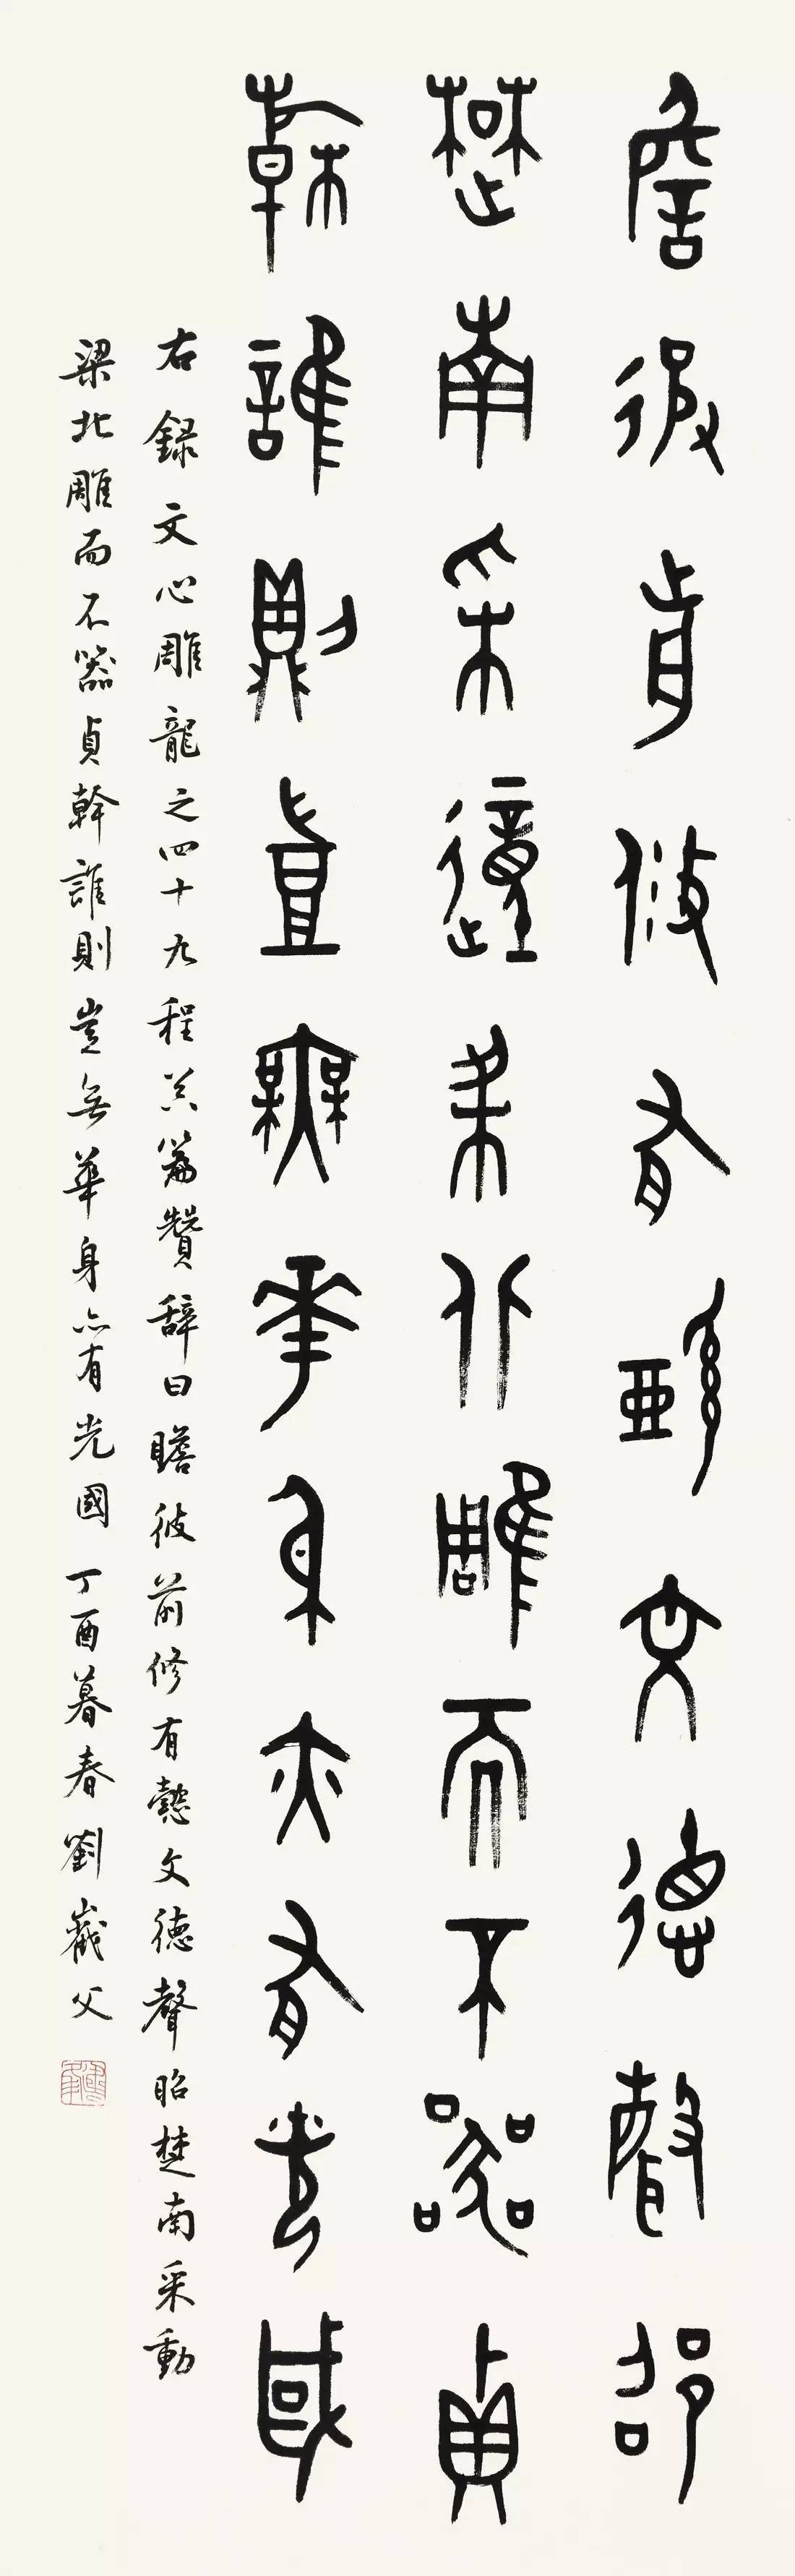 瞻彼前修有懿文德聲昭
楚南采動梁北雕而不器貞
幹誰則豈無華身亦有光國
右録文心雕龍之四十九程器篇贊辭曰瞻彼前修有懿文德聲昭楚南采動
梁北雕而不器貞幹誰則豈無華身亦有光國丁酉暮春劉巖父